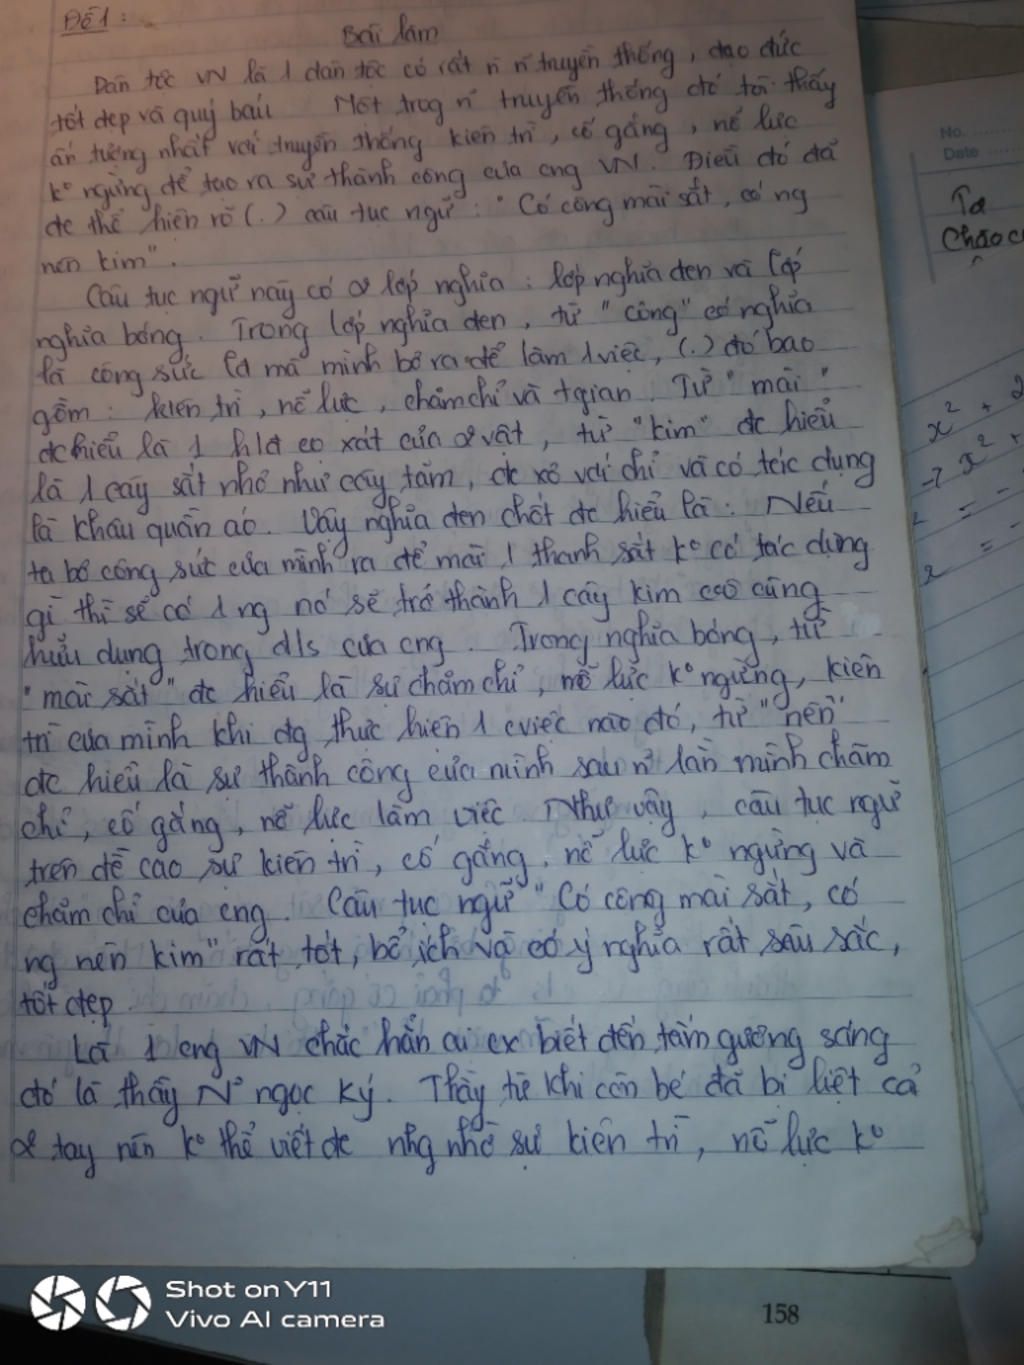 Đề 1:
Bài làm
Dân tộc VN là 1 dân tộc có rất n n truyền thống, đạo đức
tốt đẹp và quý báu Một trog n truyền thống đó tôi thấy
ấn tượng nhất với truyền thống kiên trì, cố gắng, nổ lực
k° ngừng để tạo ra sự thành công của cng VN. Điều đó đã
đc thể hiện rõ (.) câu tục ngữ: "Có công mài sắt, có ng
nên kim".
Câu tục ngữ này có 2 lớp nghĩa: lớp nghĩa đen và lớp
nghĩa bóng. Trong lớp nghĩa đen, từ "công" có nghĩa
là công sức lđ mà mình bỏ ra để làm 1 việc, (.) đó bao
gồm: kiên trì, nổ lực, chăm chỉ và tgian. Từ "mài"
đc hiểu là 1 hlđ cọ xát của 2 vật, từ "kim" đc hiểu
là 1 cây sắt nhỏ như cây tăm, đc xỏ với chỉ và có tác dụng
là khâu quần áo. Vậy nghĩa đen chốt đc hiểu là: Nếu
ta bỏ công sức của mình ra để mài 1 thanh sắt k° có tác dụng
gì thì sẽ có 1 ng nó sẽ trở thành 1 cây kim cũng
hữu dụng trong đ/s của cng. Trong nghĩa bóng, từ
"mài sắt" đc hiểu là sự chăm chỉ, nổ lực k° ngừng, kiên
trì của mình khi đg thực hiện 1 cviệc nào đó, từ "nên"
đc hiểu là sự thành công của mình sau n lần mình chăm
chỉ, cố gắng, nổ lực làm việc. Như vậy, câu tục ngữ
trên đề cao sự kiên trì, cố gắng, nổ lực k° ngừng và
chăm chỉ của cng. Câu tục ngữ "Có công mài sắt, có
ng nên kim" rất tốt, bổ ích và có ý nghĩa rất sâu sắc,
tốt đẹp.
Là 1 cng VN chắc hẳn ai cx biết đến tấm gương sáng
đó là thầy N° ngọc Ký. Thầy từ khi còn bé đã bị liệt cả
2 tay nên k° thể viết đc nhg nhờ sự kiên trì, nổ lực k°
No.
Date
Ta
Chào c
x² + 2
-7 x² +
= -
= -
Shot on Y11
Vivo AI camera
158